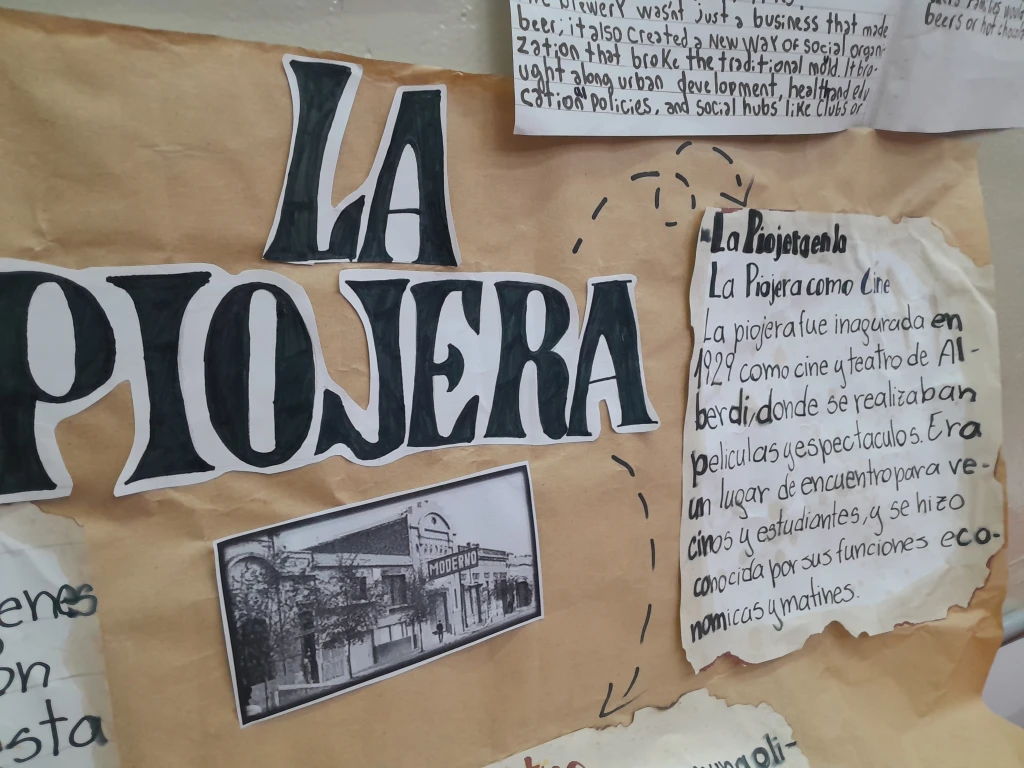 brewery wasn't just a business that made
beer, it also created a new way of social organi-
zation that broke the traditional mold. It bro-
ught along urban development, health and edu
cation policies, and social hubs like clubs or
beers or hot
LA
PIOJERA
MODERNO
La Piojera en la
La Piojera como Cine
La piojera fue inagurada en
1929 como cine y teatro de Al-
berdi, donde se realizaban
peliculas y espectaculos. Era
un lugar de encuentro para ve-
cinos y estudiantes, y se hizo
conocida por sus funciones eco-
nomicas y matines.
enes
ón
sta